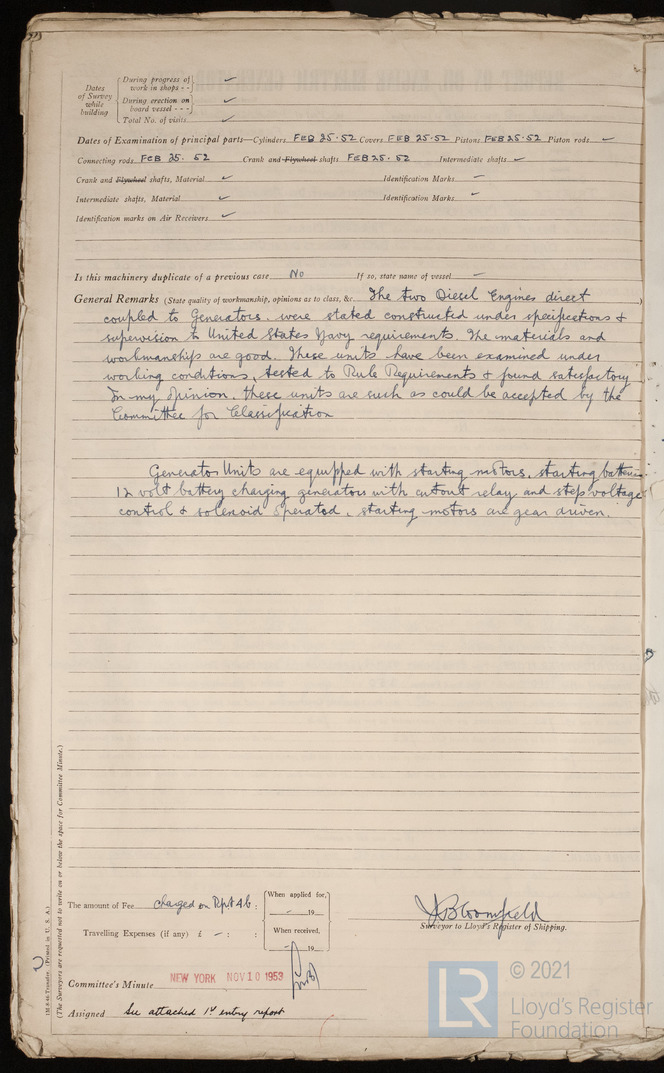 Dates of Survey while building
During progress of work in shops - - ✓
During erection on board vessel - - - ✓
Total No. of visits ✓
Dates of Examination of principal parts—Cylinders FEB 25·52 Covers FEB 25·52 Pistons FEB 25·52 Piston rods ✓
Connecting rods FEB 25·52 Crank and Flywheel shafts FEB 25·52 Intermediate shafts ✓
Crank and Flywheel shafts, Material ✓ Identification Marks —
Intermediate shafts, Material ✓ Identification Marks —
Identification marks on Air Receivers ✓
Is this machinery duplicate of a previous case No If so, state name of vessel —
General Remarks (State quality of workmanship, opinions as to class, &c. The two Diesel Engines direct )
coupled to Generators, were stated constructed under specifications &
supervision to United States Navy requirements. The materials and
workmanship are good. These units have been examined under
working conditions, tested to Rule Requirements & found satisfactory
In my opinion, these units are such as could be accepted by the
Committee for Classification
Generator Units are equipped with starting motors, starting batteries
12 volt battery charging generators with cutout relay and step voltage
control & solenoid operated, starting motors are gear driven.
1M-8-46 Transfer. (Printed in U. S. A.)
(The Surveyors are requested not to write on or below the space for Committee Minute.)
The amount of Fee charged on Rpt 4b :
When applied for,
— 19
Travelling Expenses (if any) £ — : :
When received,
— 19
JBloomfield
Surveyor to Lloyd's Register of Shipping.
Committee's Minute NEW YORK NOV 10 1953
Assigned See attached 1st entry report
LR
© 2021
Lloyd's Register
Foundation